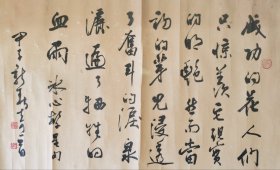 成功的花人们
只惊羡它现实
的明艷然而当
初的芽儿浸透
了奮斗的淚泉
灑遍了牺牲的
血雨 冰心
甲子